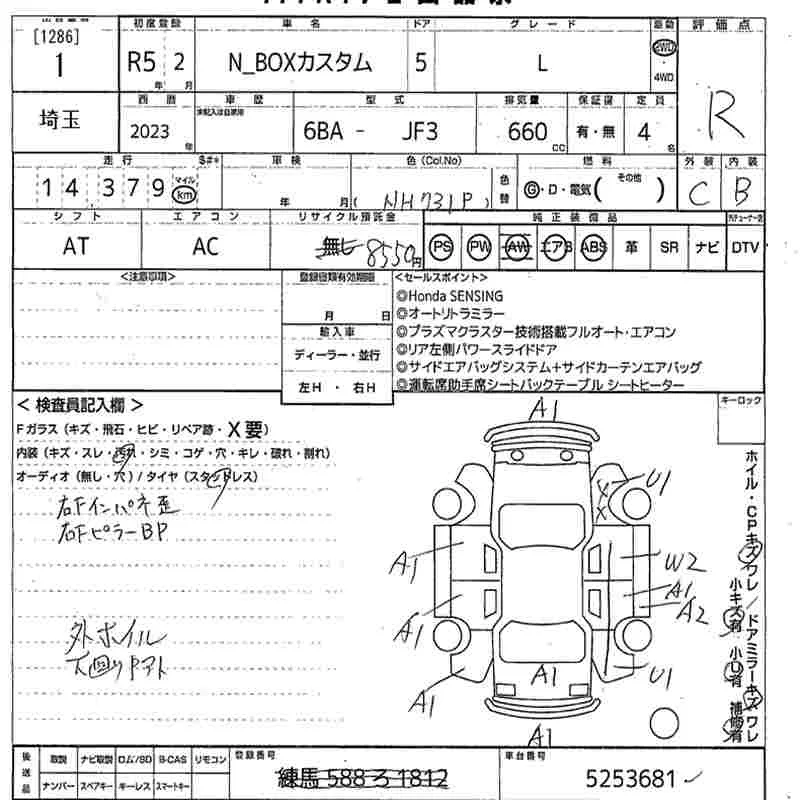 [1286]
1
初度登録
R5 2
年 月
車名
N_BOXカスタム
ドア
5
グレード
L
駆動
2WD
4WD
評価点
R
埼玉
西暦
2023
年
車歴
未記入は自家用
型式
6BA - JF3
排気量
660
CC
保証書
有・無
定員
4
名
走行
14,379
マイル
km
$#*
車検
年 月
色(Col.No)
(NH731P)
色替
燃料
G・D・電気( その他 )
外装
C
内装
B
シフト
AT
エアコン
AC
リサイクル預託金
無し 8550円
純正装備品
PS PW AW エアB ABS 革 SR ナビ
DTV
<注意事項>
登録書類有効期限
月 日
輸入車
ディーラー・並行
左H ・ 右H
<セールスポイント>
◎Honda SENSING
◎オートリトラミラー
◎プラズマクラスター技術搭載フルオート・エアコン
◎リア左側パワースライドドア
◎サイドエアバッグシステム+サイドカーテンエアバッグ
◎運転席助手席シートバックテーブル シートヒーター
キーロック
< 検査員記入欄 >
Fガラス(キズ・飛石・ヒビ・リペア跡・X要)
内装(キズ・スレ・汚れ・シミ・コゲ・穴・キレ・破れ・割れ)
オーディオ(無し・穴)/タイヤ(スタッドレス)
右Fインパネ歪
右FピラーBP
外ホイル
下回りサアト
A1
X
X
U1
A1
W2
A1
A2
A1
A1
U1
A1
A1
ホイル・CPキズワレ/ドアミラーキズワレ
小キズ有 小U有 補修有
後送品
取説 ナビ取説 ロム/SD B-CAS リモコン
ナンバー スペアキー キーレス スマートキー
登録番号
練馬 588 ろ 1812
車台番号
5253681